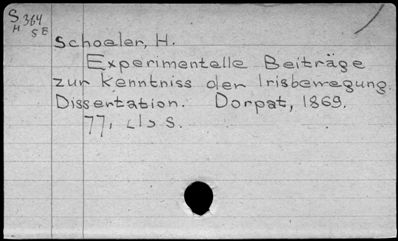 S 364
H 5E
Schoeler, H.
Experimentelle Beiträge
zur Kenntniss der Irisbewegung.
Dissertation. Dorpat, 1869.
77, S.